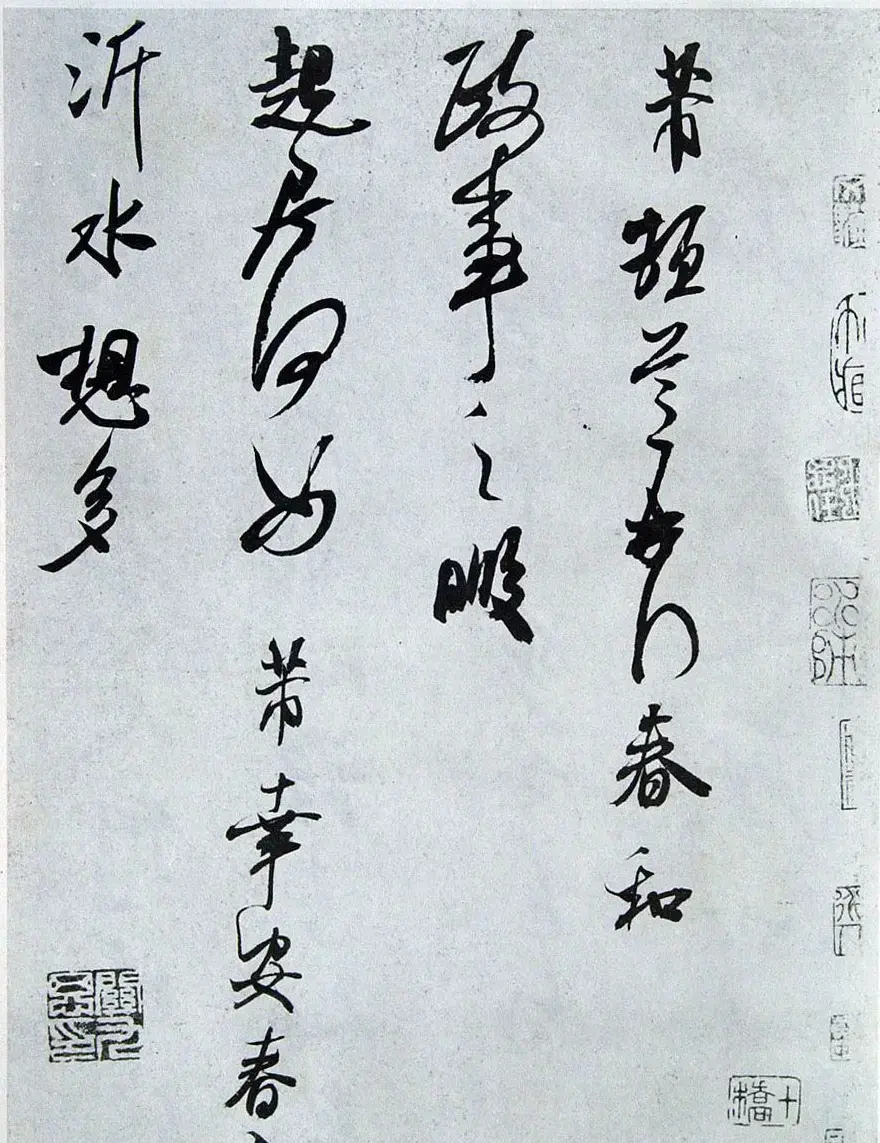 芾頓首再拜春和
政事之暇
起居何如 芾幸安春
沂水想多